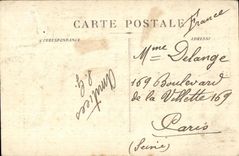 France
CARTE POSTALE
CORRESPONDANCE
ADRESSE
Mme Delange
169 Boulevard
de la Villette 169
Paris
(Seine)
Amitiés